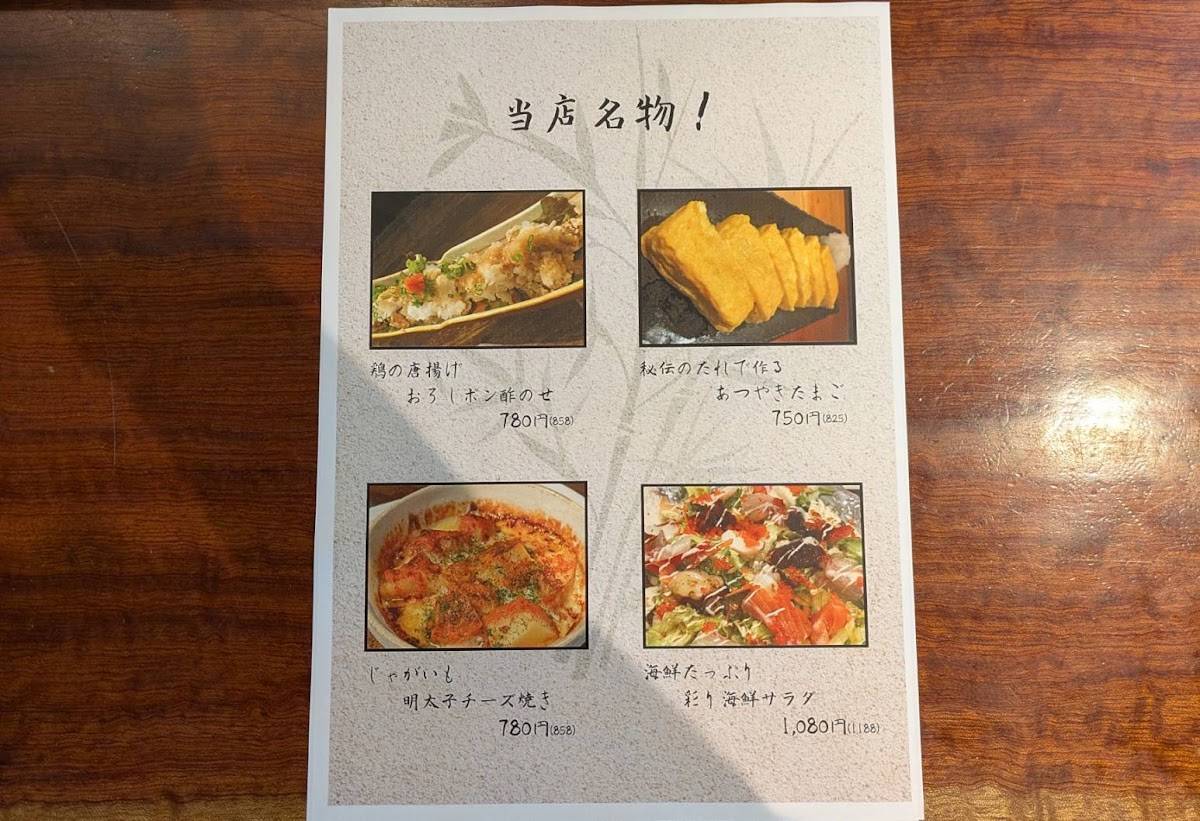 当店名物!
鶏の唐揚げ
おろしポン酢のせ
780円(858)
秘伝のたれで作る
あつやきたまご
750円(825)
じゃがいも
明太子チーズ焼き
780円(858)
海鮮たっぷり
彩り海鮮サラダ
1,080円(1,188)